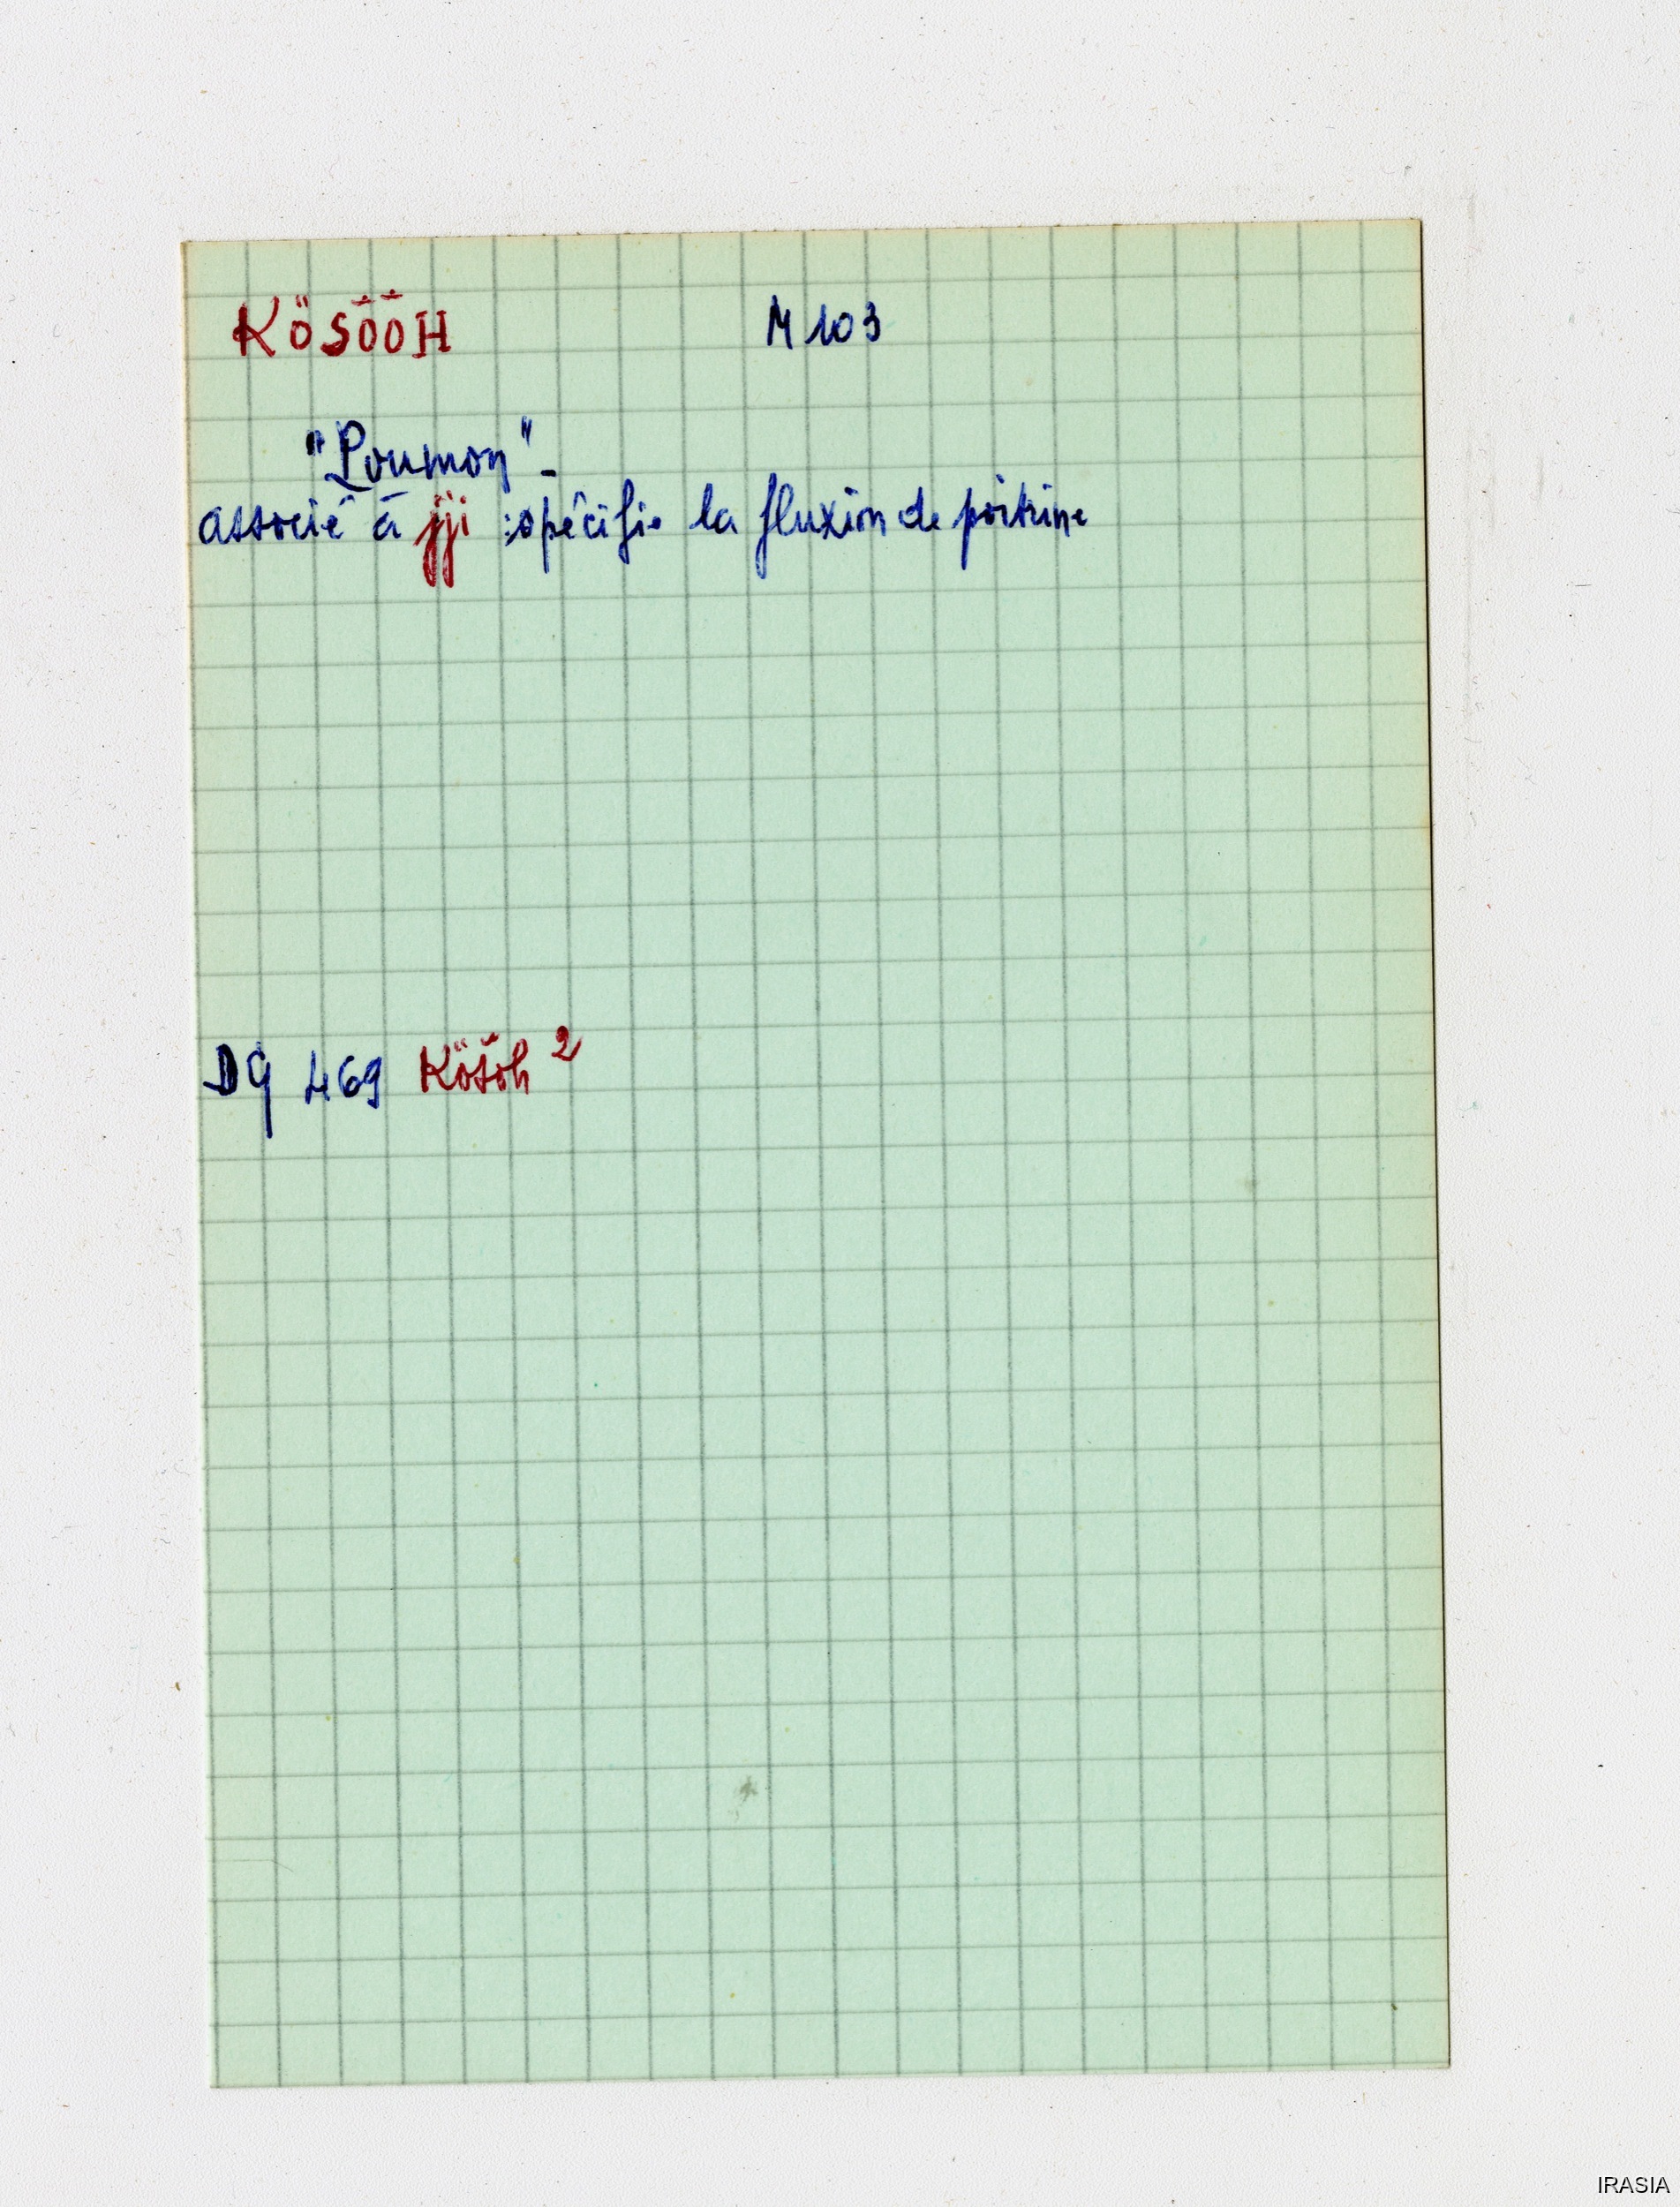 KÖSÖ̆Ö̆H M 103
"Poumon" -
associé à jji : spécifie la fluxion de poitrine
DG 469 Kösö̆h 2
IRASIA